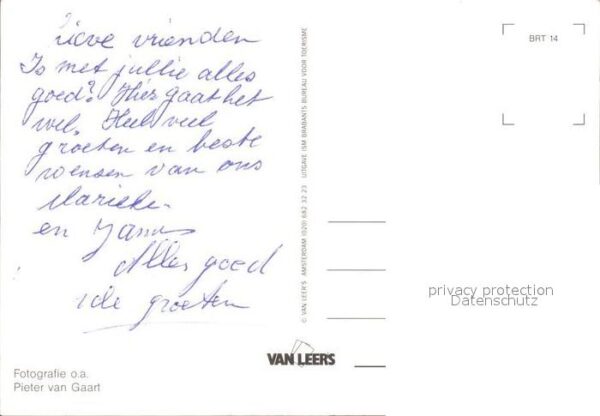 Lieve vrienden
Is met jullie alles
goed? Hier gaat het
wel. Heel veel
groeten en beste
wensen van ons
Marieke
en
Alles goed
de groeten
Fotografie o.a.
Pieter van Gaart
VAN LEERS
© VAN LEER'S AMSTERDAM (020) 682 32 23 UITGAVE: ISM BRABANTS BUREAU VOOR TOERISME
BRT 14
privacy protection
Datenschutz